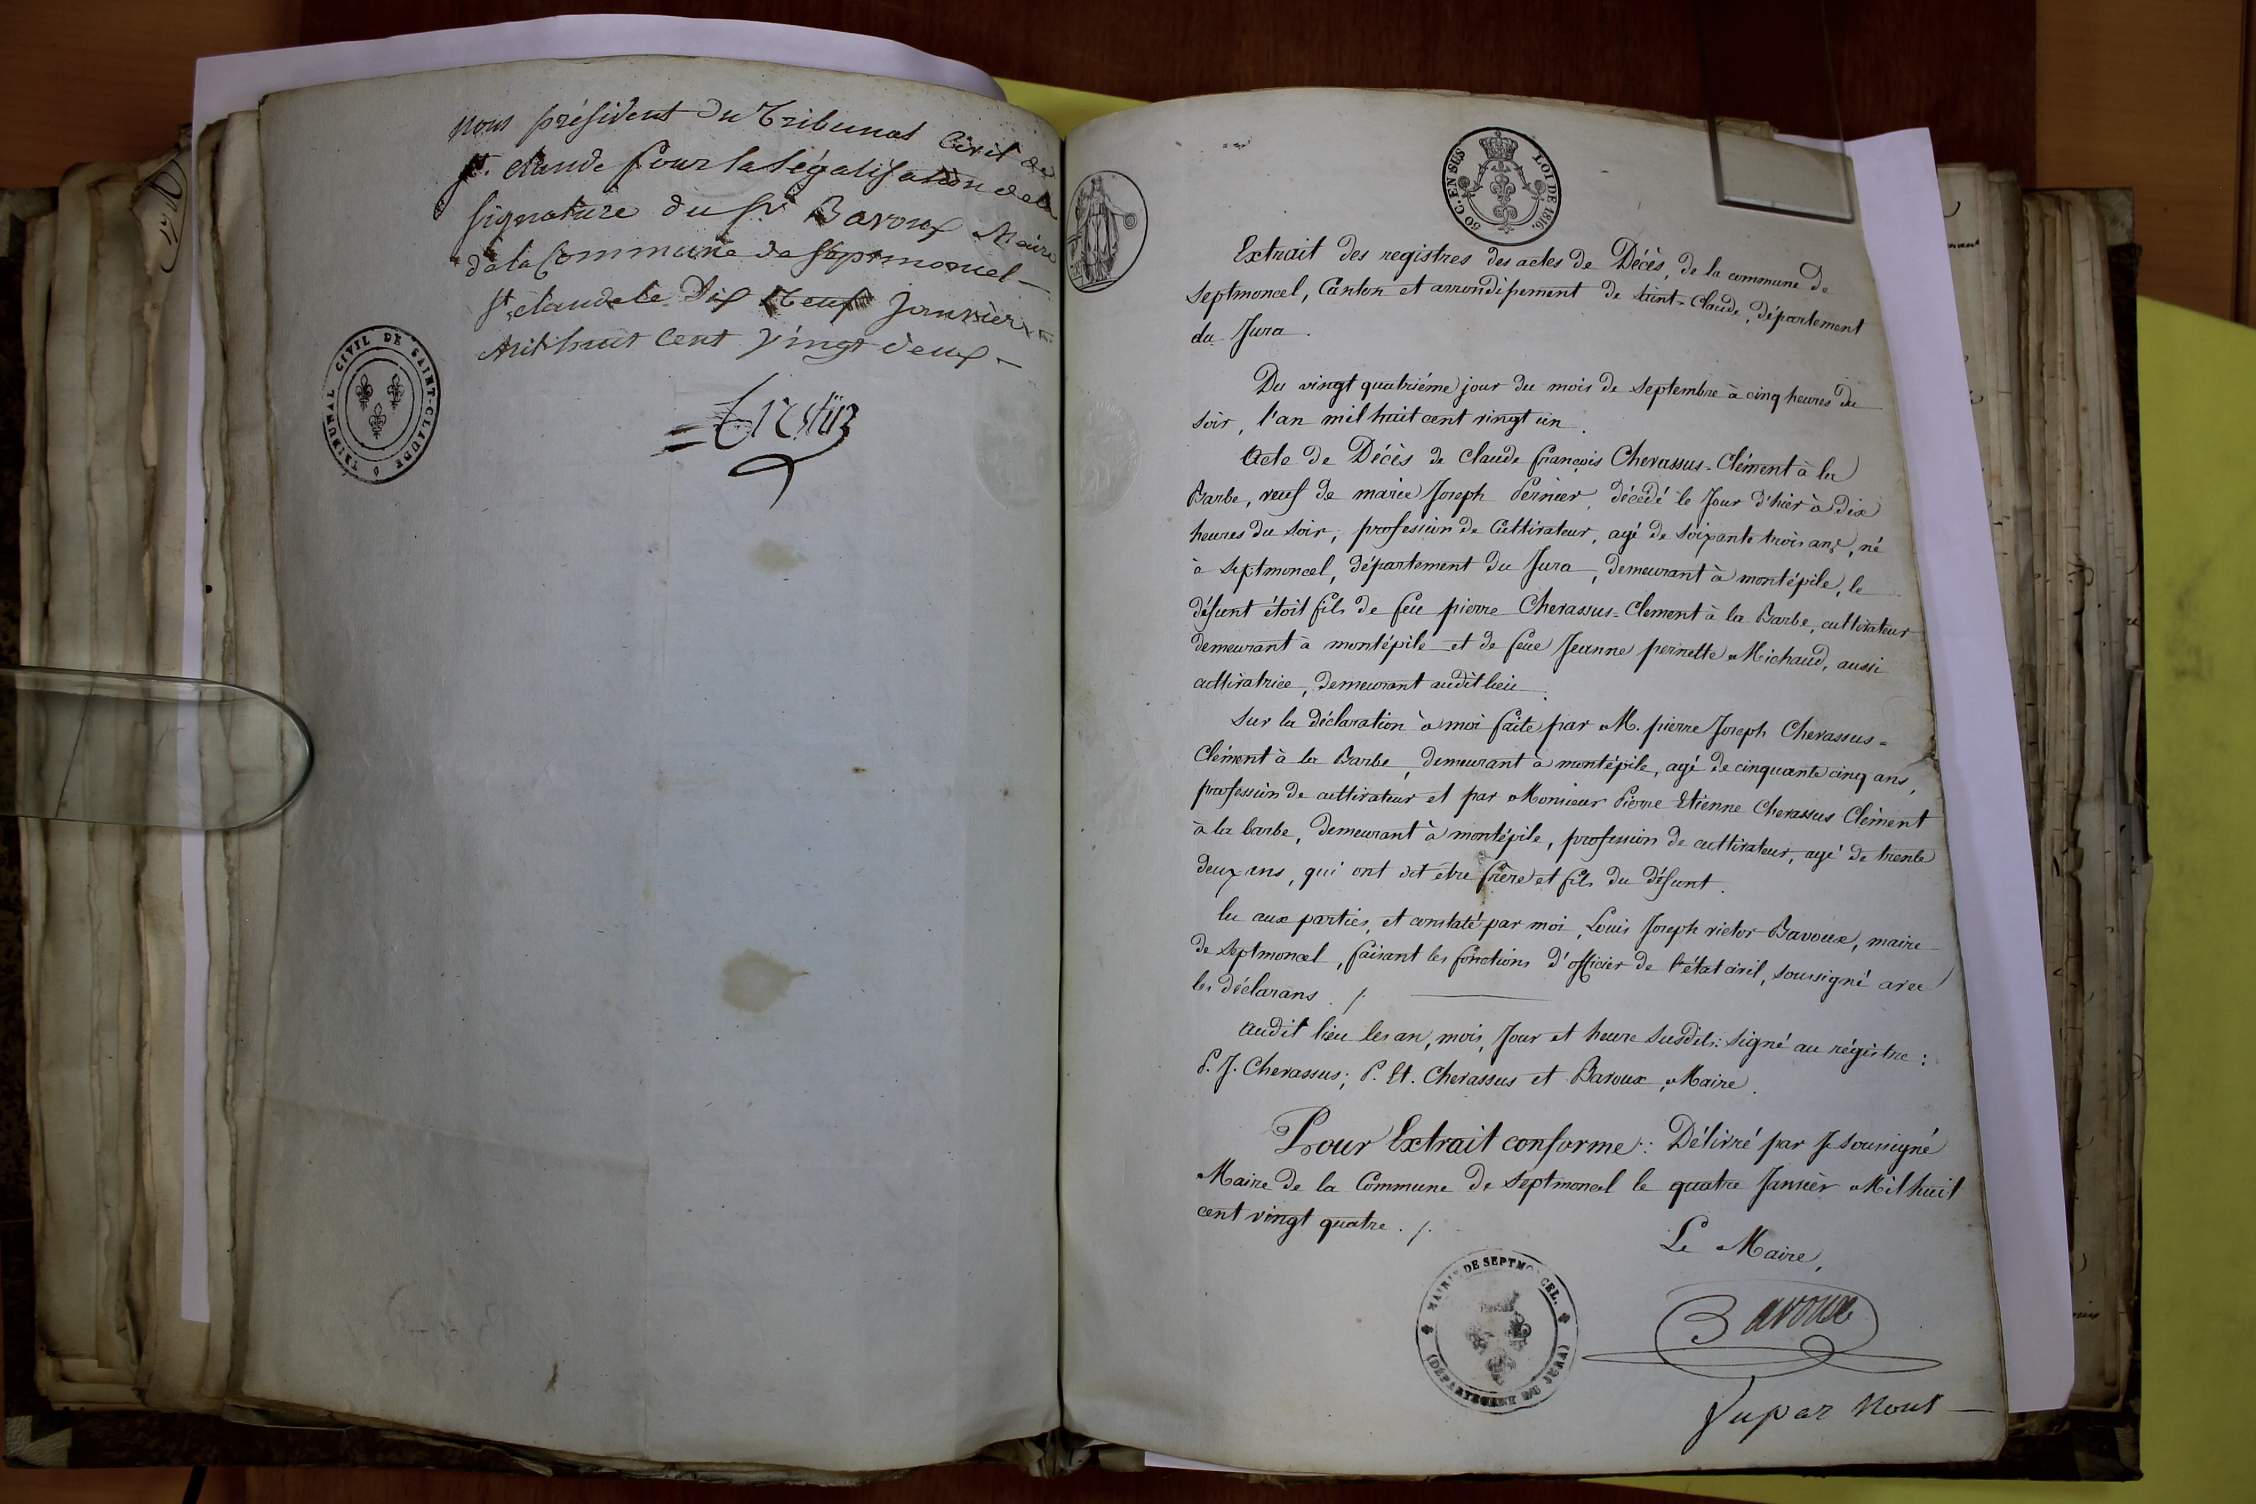 nous président du Tribunal Civil de
St. claude pour la légalisation de la
signature du Sr Bavoux Maire
de la Commune de Septmoncel —
St. claude le Dix Neuf Janvier
Mil huit Cent Vingt deux —
TRIBUNAL CIVIL DE SAINT-CLAUDE
Crestin
50 C. EN SUS
LOI DE 1816.
Extrait des registres des actes de Décès, de la commune de
Septmoncel, Canton et arrondissement de Saint-Claude, département
du Jura.
Du vingt quatrième jour du mois de Septembre à cinq heures du
soir, l'an mil huit cent vingt un.
Acte de Décès de Claude françois Chevassus-Clément à la
Barbe, veuf de marie Joseph Pernier, décédé le Jour d'hier à dix
heures du soir, profession de Cultivateur, agé de soixante trois ans, né
à Septmoncel, département du Jura, demeurant à montépile, le
défunt étoit fils de feu pierre Chevassus-Clement à la Barbe, cultivateur
demeurant à montépile et de feue Jeanne pernette Michaud, aussi
cultivatrice, demeurant audit lieu.
Sur la déclaration à moi faite par M. pierre Joseph Chevassus-
Clément à la Barbe, demeurant à montépile, agé de cinquante cinq ans,
profession de cultivateur et par Monsieur Pierre Etienne Chevassus Clément
à la barbe, demeurant à montépile, profession de cultivateur, agé de trente
deux ans, qui ont dit etre frère et fils du défunt.
lu aux parties, et constaté par moi, Louis Joseph victor Bavoux, maire
de Septmoncel, faisant les fonctions d'officier de l'état civil, soussigné avec
les déclarans ./.
audit lieu les an, mois, Jour et heure susdits: signé au régistre :
P. J. Chevassus; P. Et. Chevassus et Bavoux, Maire.
Pour Extrait conforme : Délivré par Je soussigné
Maire de la Commune de Septmoncel le quatre Janvier Mil huit
cent vingt quatre ./.
Le Maire,
MAIRIE DE SEPTMONCEL.
(DÉPARTEMENT DU JURA)
Bavoux
Vu par Nous —